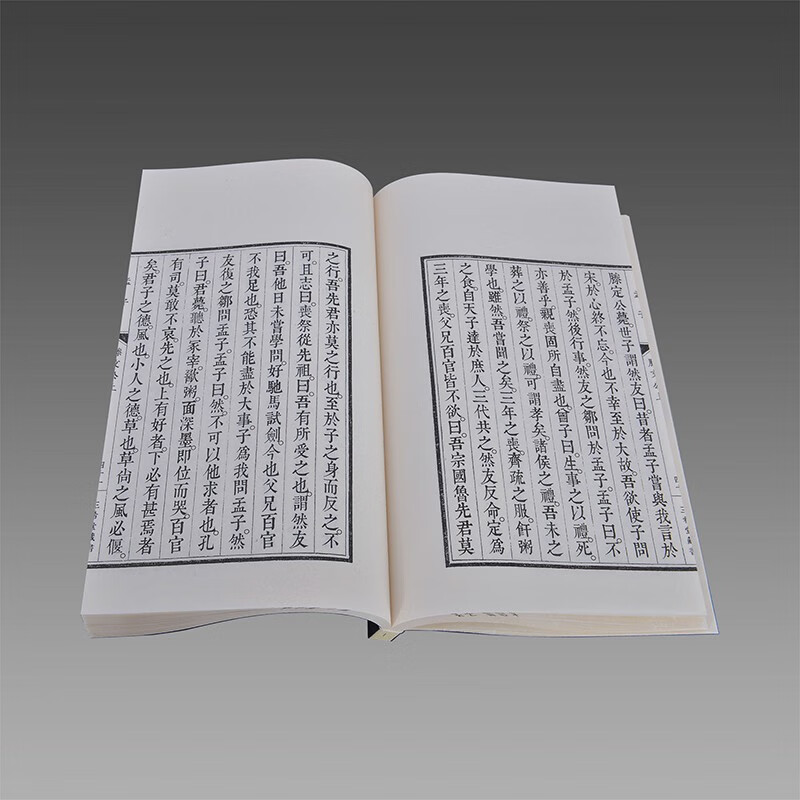 滕定公薨。世子謂然友曰。昔者孟子嘗與我言於
宋。於心終不忘。今也不幸至於大故。吾欲使子問
於孟子。然後行事。然友之鄒問於孟子。孟子曰。不
亦善乎。親喪固所自盡也。曾子曰。生事之以禮。死
葬之以禮。祭之以禮。可謂孝矣。諸侯之禮。吾未之
學也。雖然。吾嘗聞之矣。三年之喪。齊疏之服。飦粥
之食。自天子達於庶人。三代共之。然友反命。定爲
三年之喪。父兄百官皆不欲。曰。吾宗國魯先君莫
之行。吾先君亦莫之行也。至於子之身而反之。不
可。且志曰。喪祭從先祖。曰。吾有所受之也。謂然友
曰。吾他日未嘗學問。好馳馬試劍。今也父兄百官
不我足也。恐其不能盡於大事。子為我問孟子。然
友復之鄒問孟子。孟子曰。然。不可以他求者也。孔
子曰。君薨。聽於冢宰。歠粥。面深墨。即位而哭。百官
有司。莫敢不哀。先之也。上有好者。下必有甚焉者
矣。君子之德。風也。小人之德。草也。草尚之風必偃。